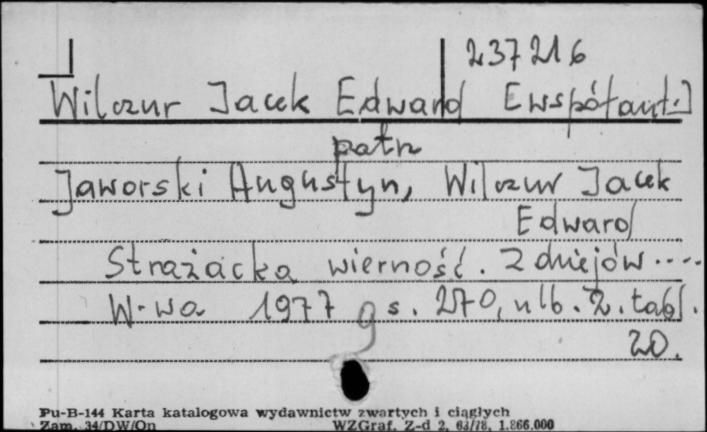 237216
Wilczur Jacek Edward [współaut.]
patrz
Jaworski Augustyn, Wilczur Jacek
Edward
Strażacka wierność. Z dziejów ....
W-wa 1977 s. 270, nlb. 2. tabl.
20.
Pu-B-144 Karta katalogowa wydawnictw zwartych i ciągłych
Zam. 34/DW/On WZGraf. Z-d 2, 63/78, 1.866.000